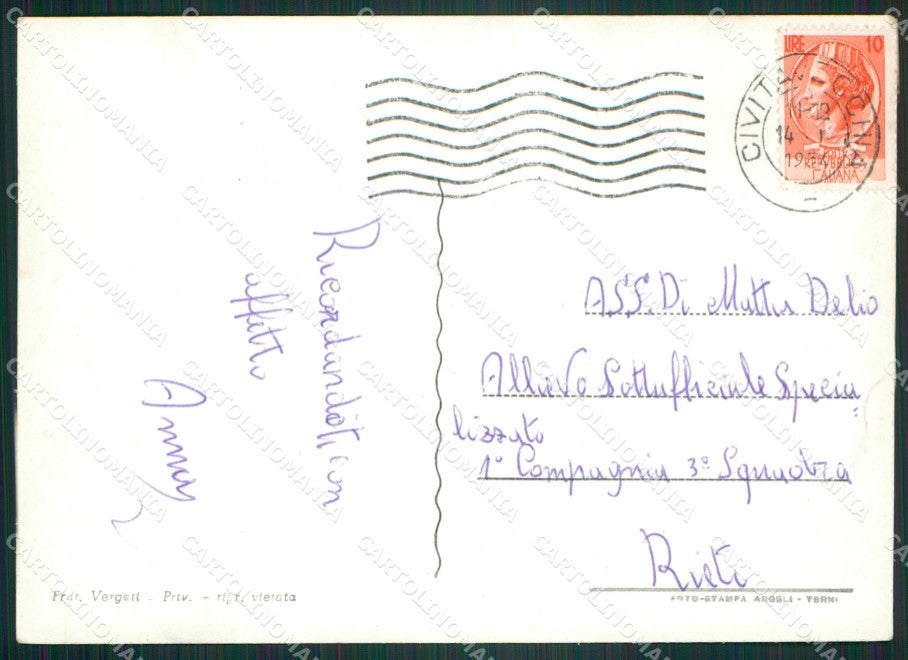 LIRE 10
POSTE
REPVBBLICA
ITALIANA
14
Ricordandoti con
affetto
Anna
ASS. Di Mattia Delio
Allievo Sottufficiale Specia=
lizzato
1° Compagnia 3° Squadra
Rieti
Frat. Vergati - Priv. - rip. vietata
FOTO-STAMPA ANGELI - TERNI
CARTOLINOMANIA